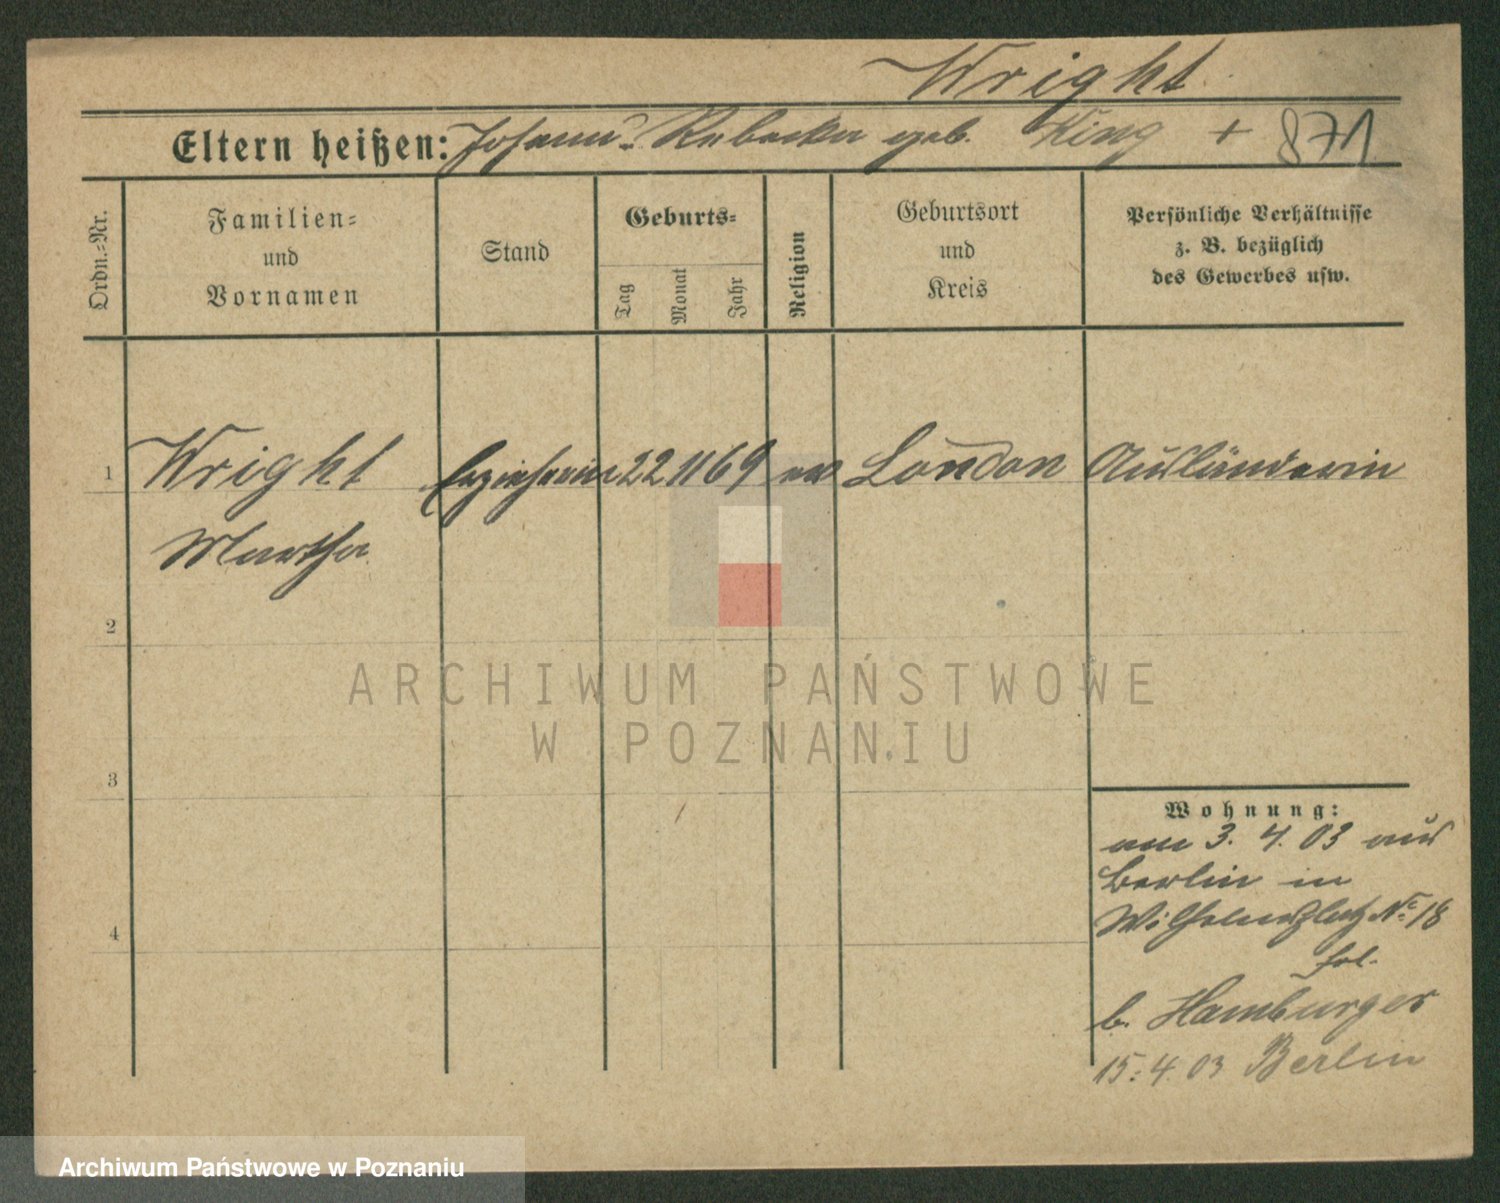 Wright.
Eltern heißen: Johann u. Rebecka geb. King + 871
Ordn.=Nr.
Familien=
und
Vornamen
Stand
Geburts=
Tag
Monat
Jahr
Religion
Geburtsort
und
Kreis
Persönliche Verhältnisse
z. B. bezüglich
des Gewerbes usw.
1 Wright Erzieherin 22 11 69 ev London Ausländerin
Martha
2
3
4
Wohnung:
am 3. 4. 03 aus
Berlin in
Wilhelmsplatz No 18
b. Hamburger
15. 4. 03 Berlin
ARCHIWUM PAŃSTWOWE
W POZNANIU
Archiwum Państwowe w Poznaniu